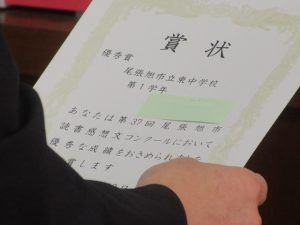 賞状
優秀賞
尾張旭市立東中学校
第1学年
あなたは第37回尾張旭市
読書感想文コンクールにおいて
優秀な成績をおさめられました
賞します